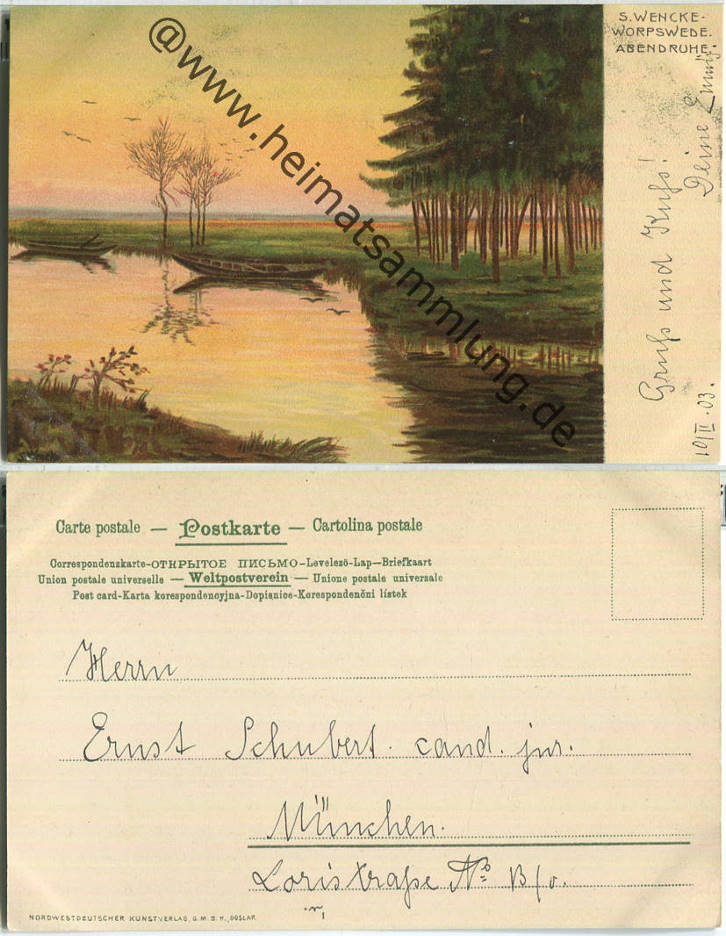 S. WENCKE-
WORPSWEDE.
ABENDRUHE.
Gruß und Kuß!
Deine
10/II.03.
@www.heimatsammlung.de
Carte postale — Postkarte — Cartolina postale
Correspondenzkarte-ОТКРЫТОЕ ПИСЬМО-Levelező-Lap-Briefkaart
Union postale universelle — Weltpostverein — Unione postale universale
Post card-Karta korespondencyjna-Dopisnice-Korespondenční lístek
Herrn
Ernst Schubert. cand. jur.
München.
Loristraße No
NORDWESTDEUTSCHER KUNSTVERLAG, G.M.B.H., GOSLAR.